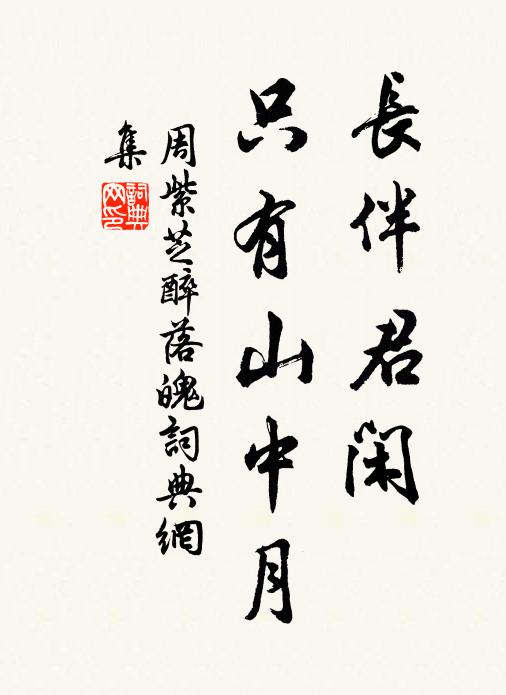 長伴君閑
只有山中月
周紫芝醉落魄詞典網
集
詞典網印